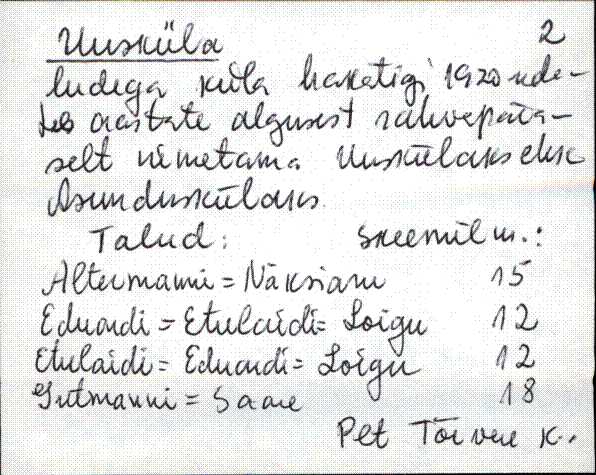 Uusküla 2
ludega küla hakatigi 1920-nde-
tes aastate algusest rahvepära-
selt nimetama Uuskülaks ehk
Asunduskülaks.
Talud: skeemil nr.:
Altermanni = Näksiaru 15
Eduardi = Etulaidi = Loigu 12
Etulaidi = Eduardi = Loigu 12
Gutmanni = Saare 18
Plt Tõrvere k..